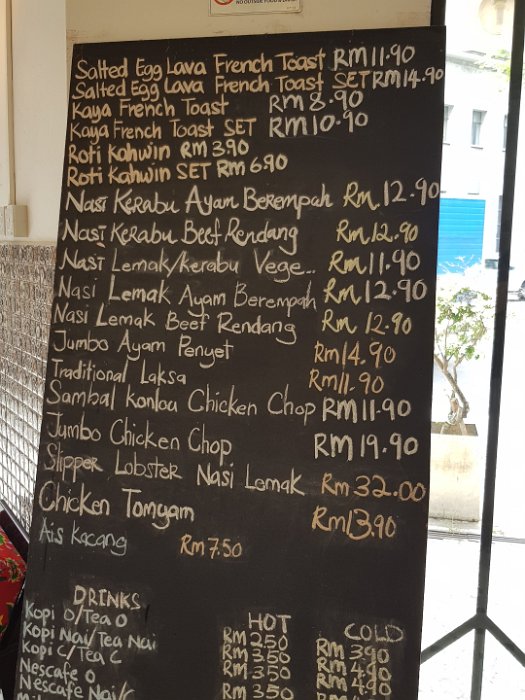 NO OUTSIDE FOOD & DRINK
Salted Egg Lava French Toast RM11.90
Salted Egg Lava French Toast SET RM14.90
Kaya French Toast RM8.90
Kaya French Toast SET RM10.90
Roti Kahwin RM3.90
Roti Kahwin SET RM6.90
Nasi Kerabu Ayam Berempah Rm12.90
Nasi Kerabu Beef Rendang Rm12.90
Nasi Lemak/kerabu Vege... Rm11.90
Nasi Lemak Ayam Berempah Rm12.90
Nasi Lemak Beef Rendang Rm12.90
Jumbo Ayam Penyet Rm14.90
Traditional Laksa Rm11.90
Sambal Konlou Chicken Chop RM11.90
Jumbo Chicken Chop RM19.90
Slipper Lobster Nasi Lemak Rm32.00
Chicken Tomyam Rm13.90
Ais kacang Rm7.50
DRINKS HOT COLD
Kopi O/Tea O RM2.50 RM3.90
Kopi Nai/Tea Nai RM3.50 RM4.90
Kopi C/Tea C RM3.50 RM4.90
Nescafe O RM3.50
Nescafe Nai/C RM3.50